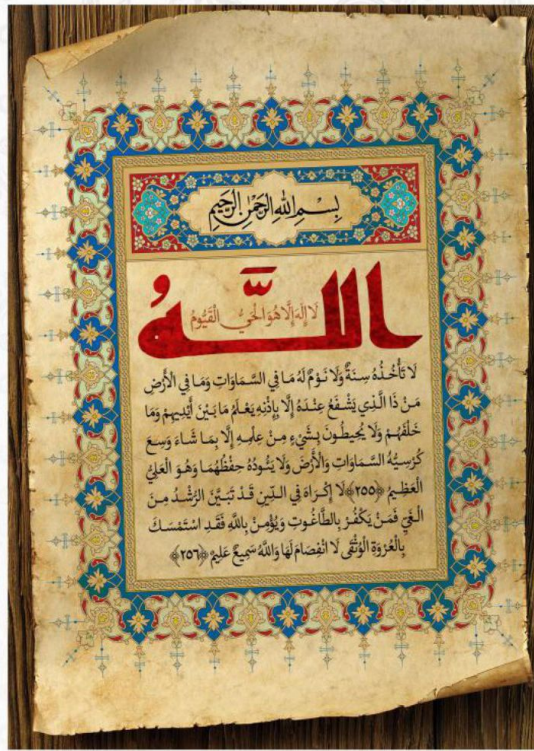 بِسْمِ اللهِ الرَّحْمٰنِ الرَّحِيْمِ
اللَّهُ
لَا إِلَهَ إِلَّا هُوَ الْحَيُّ الْقَيُّومُ
لَا تَأْخُذُهُ سِنَةٌ وَلَا نَوْمٌ لَهُ مَا فِي السَّمَاوَاتِ وَمَا فِي الْأَرْضِ
مَنْ ذَا الَّذِي يَشْفَعُ عِنْدَهُ إِلَّا بِإِذْنِهِ يَعْلَمُ مَا بَيْنَ أَيْدِيهِمْ وَمَا
خَلْفَهُمْ وَلَا يُحِيطُونَ بِشَيْءٍ مِنْ عِلْمِهِ إِلَّا بِمَا شَاءَ وَسِعَ
كُرْسِيُّهُ السَّمَاوَاتِ وَالْأَرْضَ وَلَا يَئُودُهُ حِفْظُهُمَا وَهُوَ الْعَلِيُّ
الْعَظِيمُ ﴿٢٥٥﴾ لَا إِكْرَاهَ فِي الدِّينِ قَدْ تَبَيَّنَ الرُّشْدُ مِنَ
الْغَيِّ فَمَنْ يَكْفُرْ بِالطَّاغُوتِ وَيُؤْمِنْ بِاللَّهِ فَقَدِ اسْتَمْسَكَ
بِالْعُرْوَةِ الْوُثْقَى لَا انْفِصَامَ لَهَا وَاللَّهُ سَمِيعٌ عَلِيمٌ ﴿٢٥٦﴾